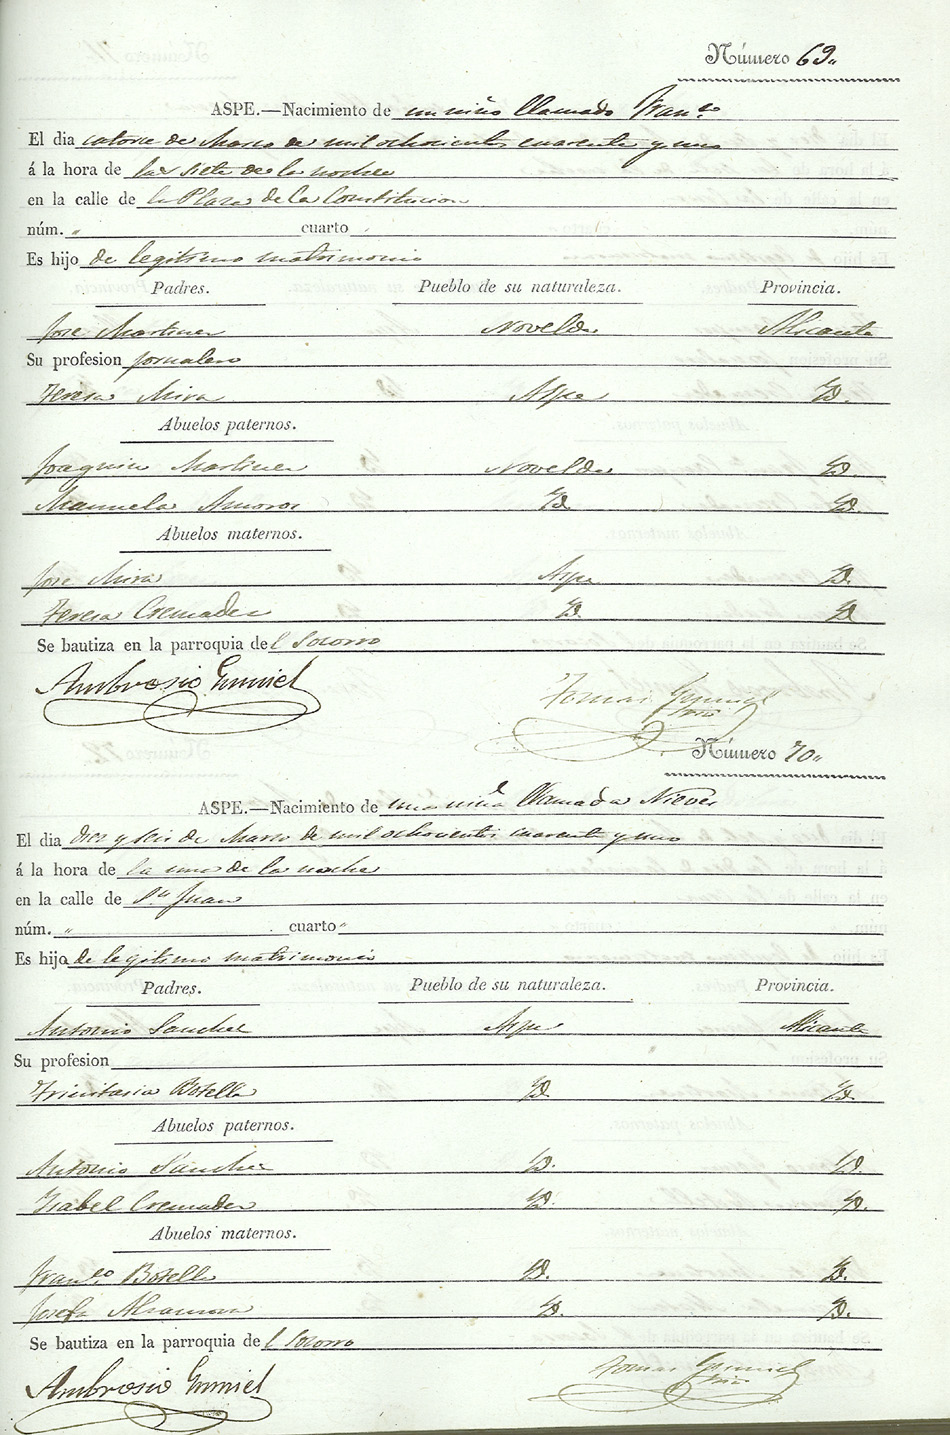 Número 69"
ASPE.—Nacimiento de un niño llamado Franco
El dia catorce de Marzo de mil ochocientos cuarenta y uno
á la hora de las siete de la noche
en la calle de la Plaza de la Constitucion
núm. " cuarto
Es hijo de legitimo matrimonio
Padres. Pueblo de su naturaleza. Provincia.
Jose Martinez Novelda Alicante
Su profesion Jornalero
Teresa Mira Aspe Yd.
Abuelos paternos.
Joaquin Martinez Novelda Yd.
Manuela Amoros Yd. Yd.
Abuelos maternos.
Jose Mira Aspe Yd.
Teresa Cremades Yd. Yd
Se bautiza en la parroquia del Socorro
Ambrosio Gumiel
Tomas Gumiel
Srio
Número 70"
ASPE.—Nacimiento de una niña llamada Nieves
El dia diez y seis de Marzo de mil ochocientos cuarenta y uno
á la hora de la una de la noche
en la calle de Sn Juan
núm. " cuarto "
Es hijo de legitimo matrimonio
Padres. Pueblo de su naturaleza. Provincia.
Antonio Sanchez Aspe Alicante
Su profesion
Trinitaria Botella Yd. Yd.
Abuelos paternos.
Antonio Sánchez Yd. Yd.
Ysabel Cremades Yd. Yd.
Abuelos maternos.
Franco Botella Yd. Yd.
Josefa Yd. Yd.
Se bautiza en la parroquia del Socorro
Ambrosio Gumiel
Tomas Gumiel
Srio